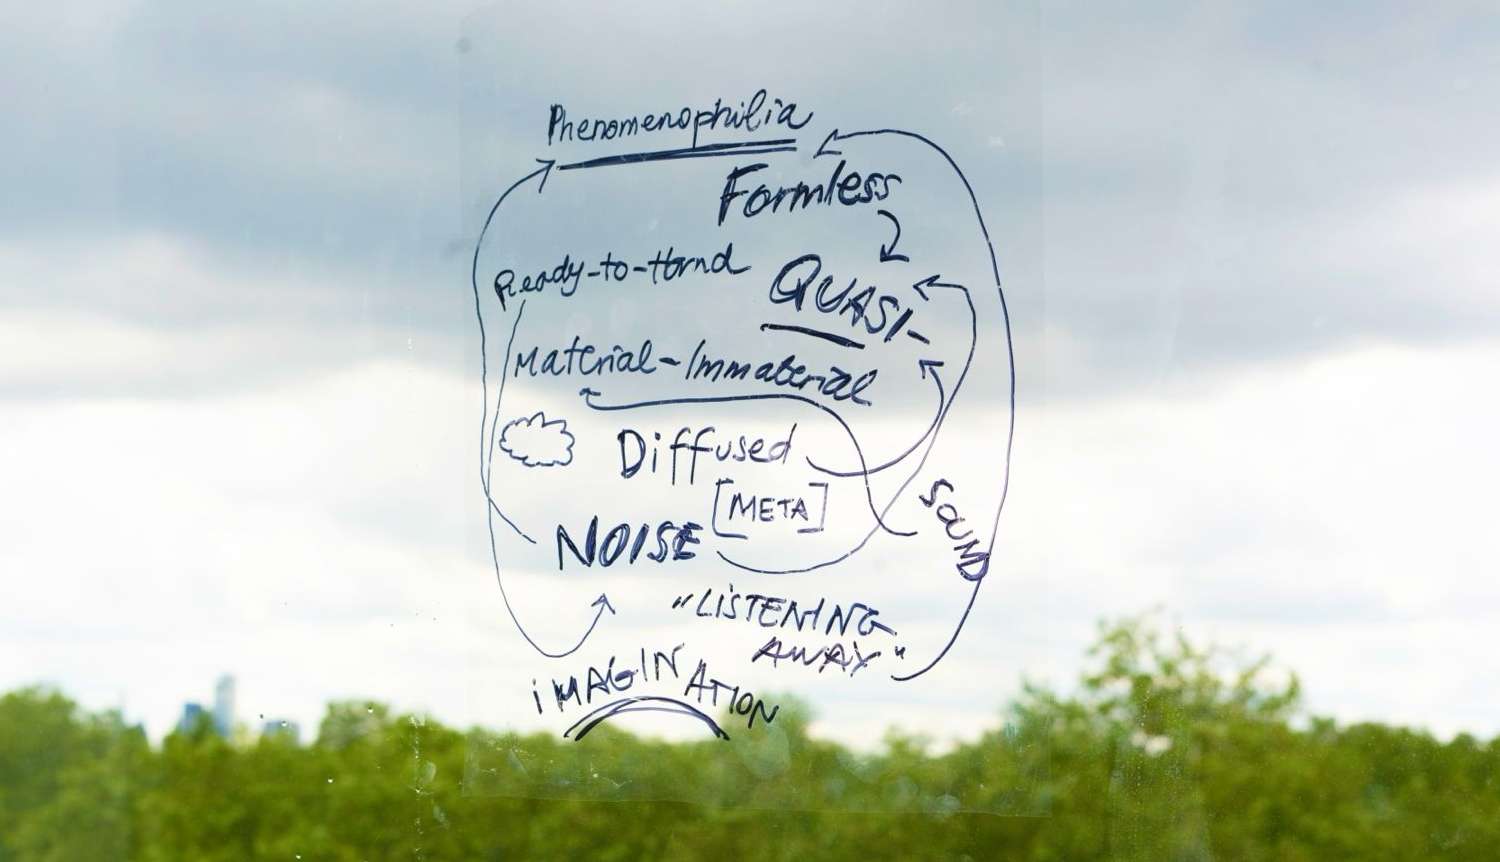 Phenomenophilia
Formless
Ready-to-Hand
QUASI-
Material-Immaterial
Diffused
[META]
SOUND
NOISE
"LISTENING
AWAY"
iMAGINATION